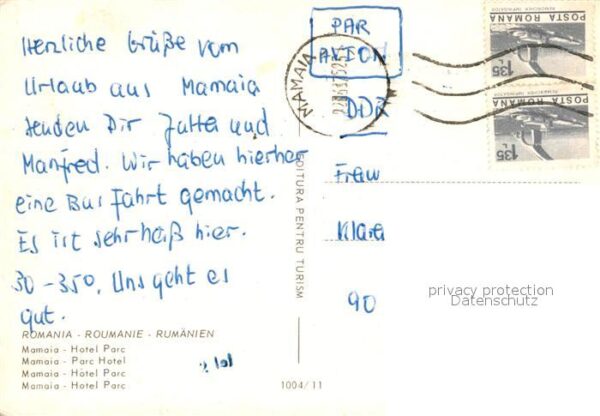 Herzliche Grüße vom
Urlaub aus Mamaia
senden Dir Jutta und
Manfred. Wir haben hierher
eine Bus Fahrt gemacht.
Es ist sehr heiß hier.
30 - 35°, Uns geht es
gut.
ROMANIA - ROUMANIE - RUMÄNIEN
Mamaia - Hotel Parc
Mamaia - Parc Hotel
Mamaia - Hotel Parc
Mamaia - Hotel Parc
1004/11
EDITURA PENTRU TURISM
PAR
AVION
MAMAIA
DDR
Frau
Klara
90
POSTA ROMANA
1,35 L
POSTA ROMANA
1,35 L
privacy protection
Datenschutz